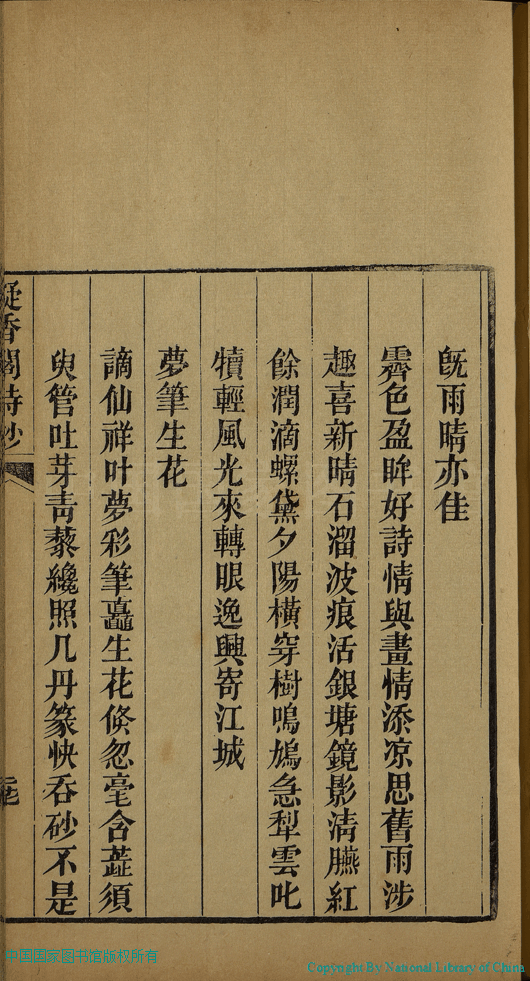 既雨晴亦佳
霽色盈眸好詩情與畫情添凉思舊雨涉
趣喜新晴石溜波痕活銀塘鏡影淸臙紅
餘潤滴螺黛夕陽橫穿樹鳴鳩急犁雲叱
犢輕風光來轉眼逸興寄江城
夢筆生花
謫仙祥叶夢彩筆矗生花倏忽毫含蕋須
臾管吐芽靑藜纔照几丹篆快吞砂不是
凝香閣詩鈔
中国国家图书馆版权所有
Copyright By National Library of China